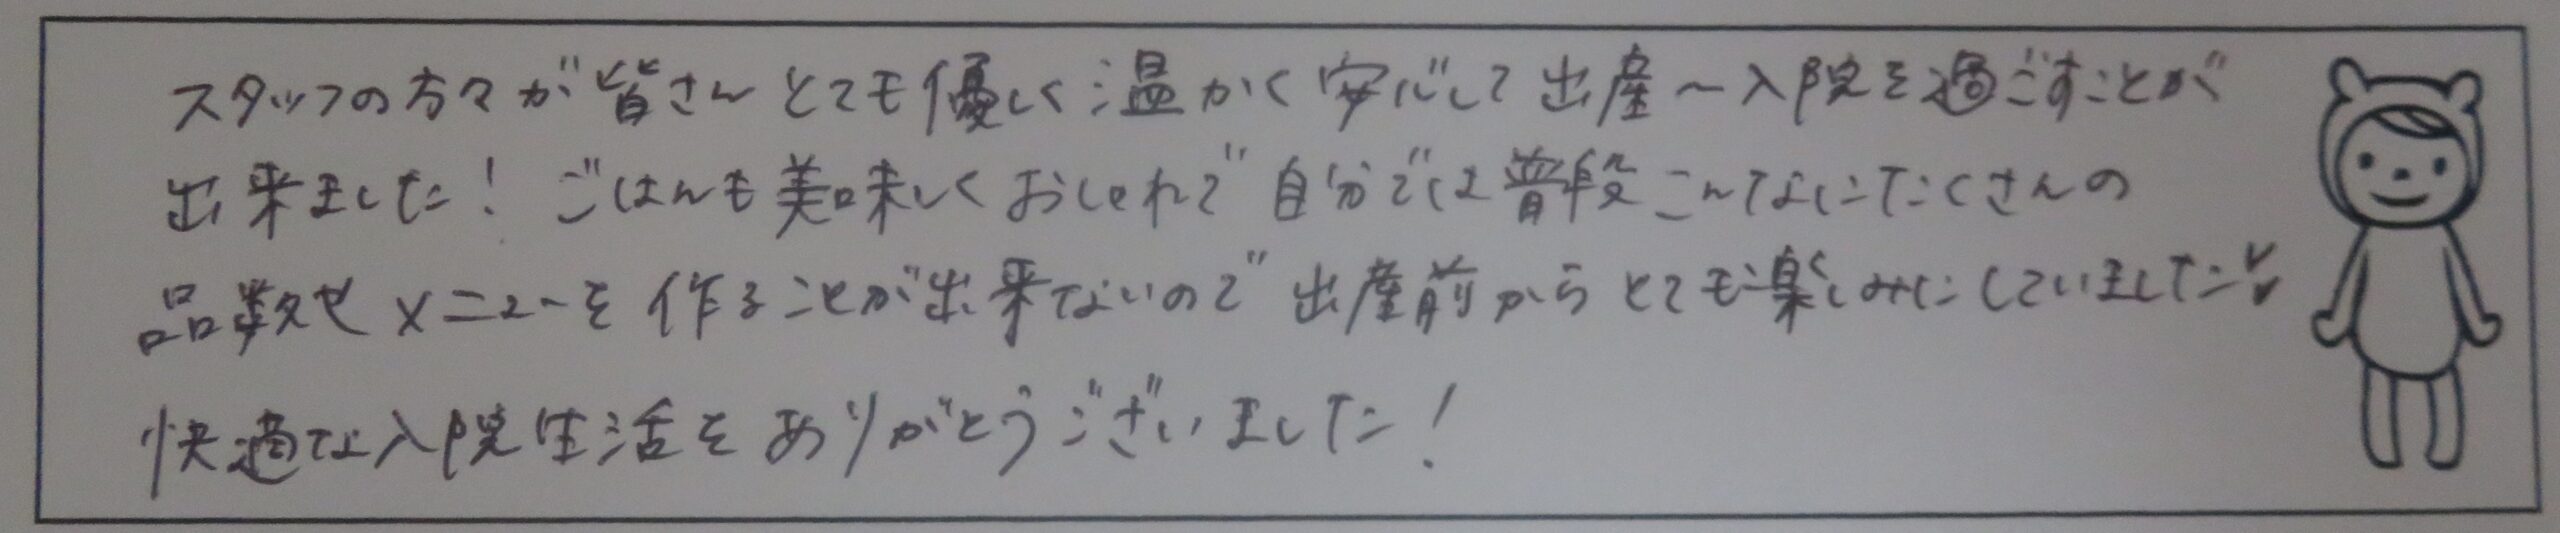 スタッフの方々が皆さんとても優しく温かく安心して出産〜入院を過ごすことが
出来ました！ごはんも美味しくおしゃれで自分では普段こんなにたくさんの
品数やメニューを作ることが出来ないので出産前からとても楽しみにしていました!!
快適な入院生活をありがとうございました！